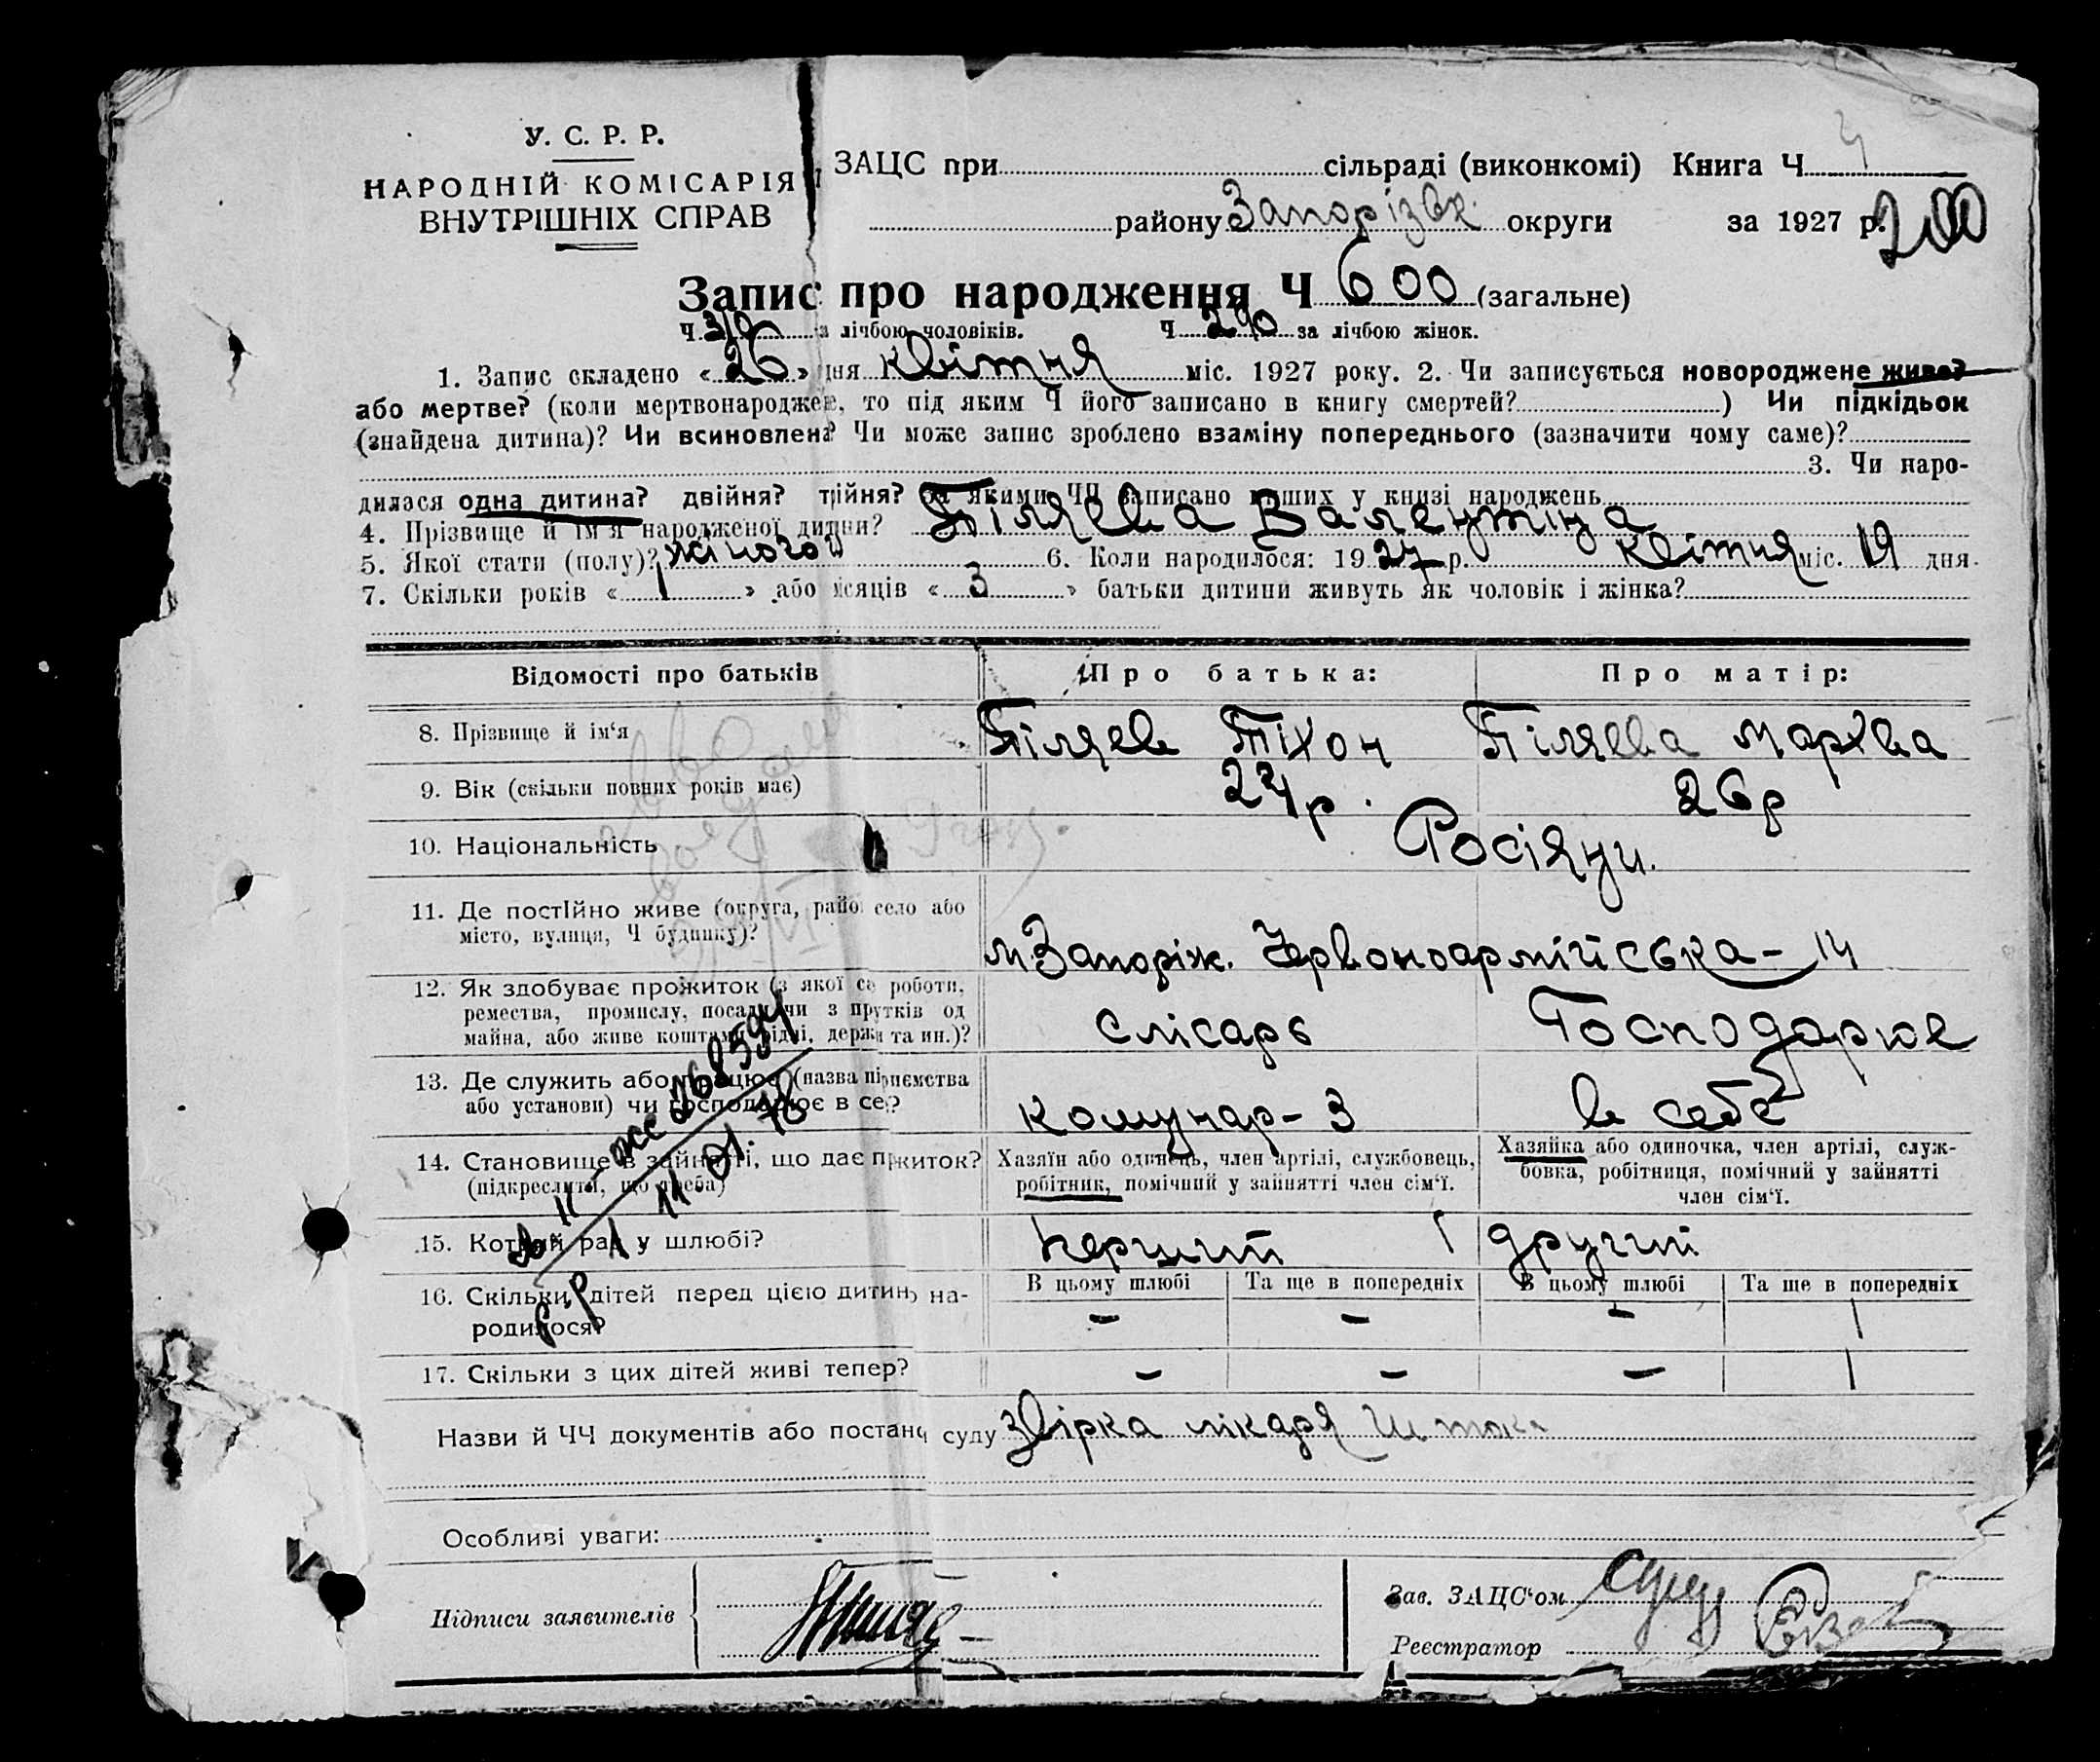 У. С. Р. Р.
НАРОДНІЙ КОМІСАРІЯ
ВНУТРІШНІХ СПРАВ
ЗАЦС при сільраді (виконкомі) Книга Ч 4
району Запорізьк. округи за 1927 р. 200
Запис про народження Ч 600 (загальне)
Ч 310 за лічбою чоловіків. Ч 290 за лічбою жінок.
1. Запис складено « 26 » дня квітня міс. 1927 року. 2. Чи записується новороджене живе?
або мертве? (коли мертвонароджене, то під яким Ч його записано в книгу смертей? ) Чи підкідьок
(знайдена дитина)? Чи всиновлена? Чи може запис зроблено взаміну попереднього (зазначити чому саме)?
3. Чи наро-
дилася одна дитина? двійня? трійня? За якими ЧЧ записано інших у книзі народжень
4. Прізвище й ім'я народженої дитини? Біляєва Валентіна
5. Якої стати (полу)? жіночої 6. Коли народилося: 1927 р. квітня міс. 19 дня.
7. Скільки років « 1 » або місяців « 3 » батьки дитини живуть як чоловік і жінка?
Відомості про батьків Про батька: Про матір:
8. Прізвище й ім‘я Біляєв Тіхон Біляєва Мархва
9. Вік (скільки повних років має) 24 р. 26 р
10. Національність Росіяни.
11. Де постійно живе (округа, район село або
місто, вулиця, Ч будинку)? м. Запоріж. Червоноармійська – 14
12. Як здобуває прожиток (з якої са роботи,
ремества, промислу, посади чи з прутків од
майна, або живе коштами рідні, держ та ин.)? слісарь Господарює
13. Де служить або працює (назва підприємства
або установи) чи господарює в себе? комунар – 3 в себе
14. Становище в зайнятті, що дає прожиток?
(підкреслити, що треба)
Хазяїн або одинець, член артілі, службовець,
робітник, помічний у зайнятті член сім‘ї.
Хазяйка або одиночка, член артілі, служ-
бовка, робітниця, помічний у зайнятті
член сім‘ї.
15. Котрий раз у шлюбі? перший другий
16. Скільки дітей перед цією дитиною на-
родилося?
В цьому шлюбі Та ще в попередніх В цьому шлюбі Та ще в попередніх
– – – 1
17. Скільки з цих дітей живі тепер? – – – 1
Назви й ЧЧ документів або постанов суду звірка лікаря
Особливі уваги:
Підписи заявителів
Зав. ЗАЦС‘ом
Реєстратор